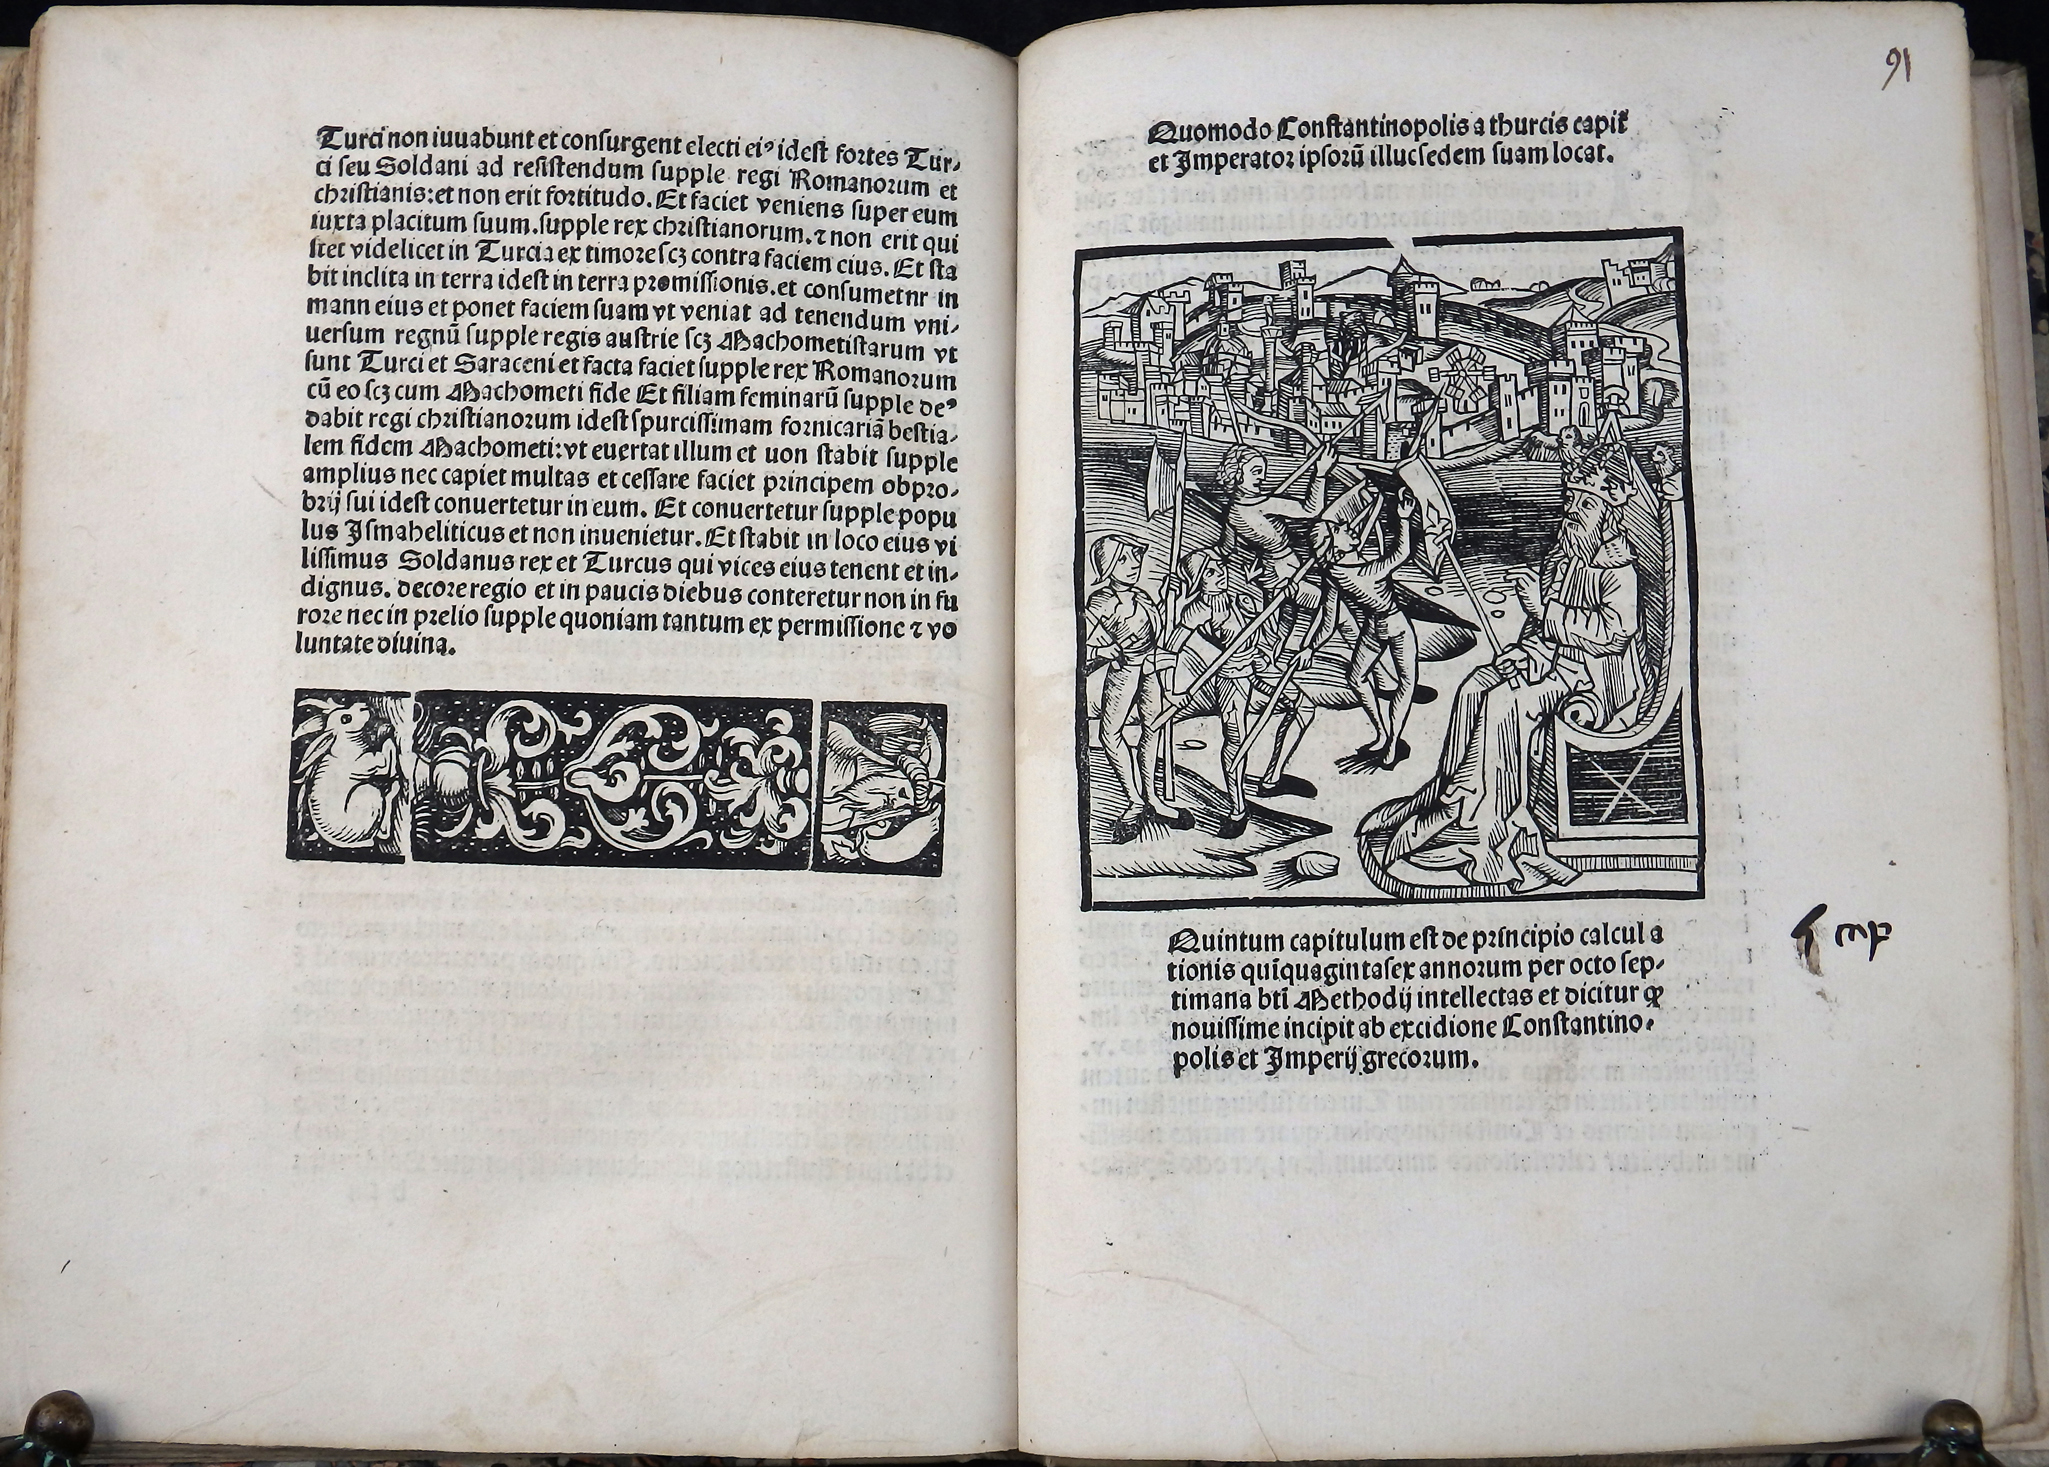 Turci non iuuabunt et consurgent electi eiꝰ idest fortes Tur⸗
ci seu Soldani ad resistendum supple regi Romanorum et
christianis:et non erit fortitudo. Et faciet veniens super eum
iuxta placitum suum.supple rex christianorum.⁊ non erit qui
stet videlicet in Turcia ex timore scꝫ contra faciem eius. Et sta
bit inclita in terra idest in terra promissionis.et consumetnr in
mann eius et ponet faciem suam vt veniat ad tenendum vni⸗
uersum regnū supple regis austrie scꝫ Machometistarum vt
sunt Turci et Saraceni et facta faciet supple rex Romanorum
cū eo scꝫ cum Machometi fide Et filiam feminarū supple deꝰ
dabit regi christianorum idest spurcissimam fornicariā bestia⸗
lem fidem Machometi:vt euertat illum et uon stabit supple
amplius nec capiet multas et cessare faciet principem obpro⸗
brij sui idest conuertetur in eum. Et conuertetur supple popu
lus Ismaheliticus et non inuenietur. Et stabit in loco eius vi
lissimus Soldanus rex et Turcus qui vices eius tenent et in⸗
dignus. decore regio et in paucis diebus conteretur non in fu
rore nec in prelio supple quoniam tantum ex permissione ⁊ vo
luntate diuina.
91
Quomodo Constantinopolis a thurcis capit̄
et Imperator ipsorū illuc sedem suam locat.
Quintum capitulum est de principio calcul a
tionis quīquagintasex annorum per octo sep⸗
timana bti̅ Methodij intellectas et dicitur ꝙ
nouissime incipit ab excidione Constantino⸗
polis et Imperij grecorum.